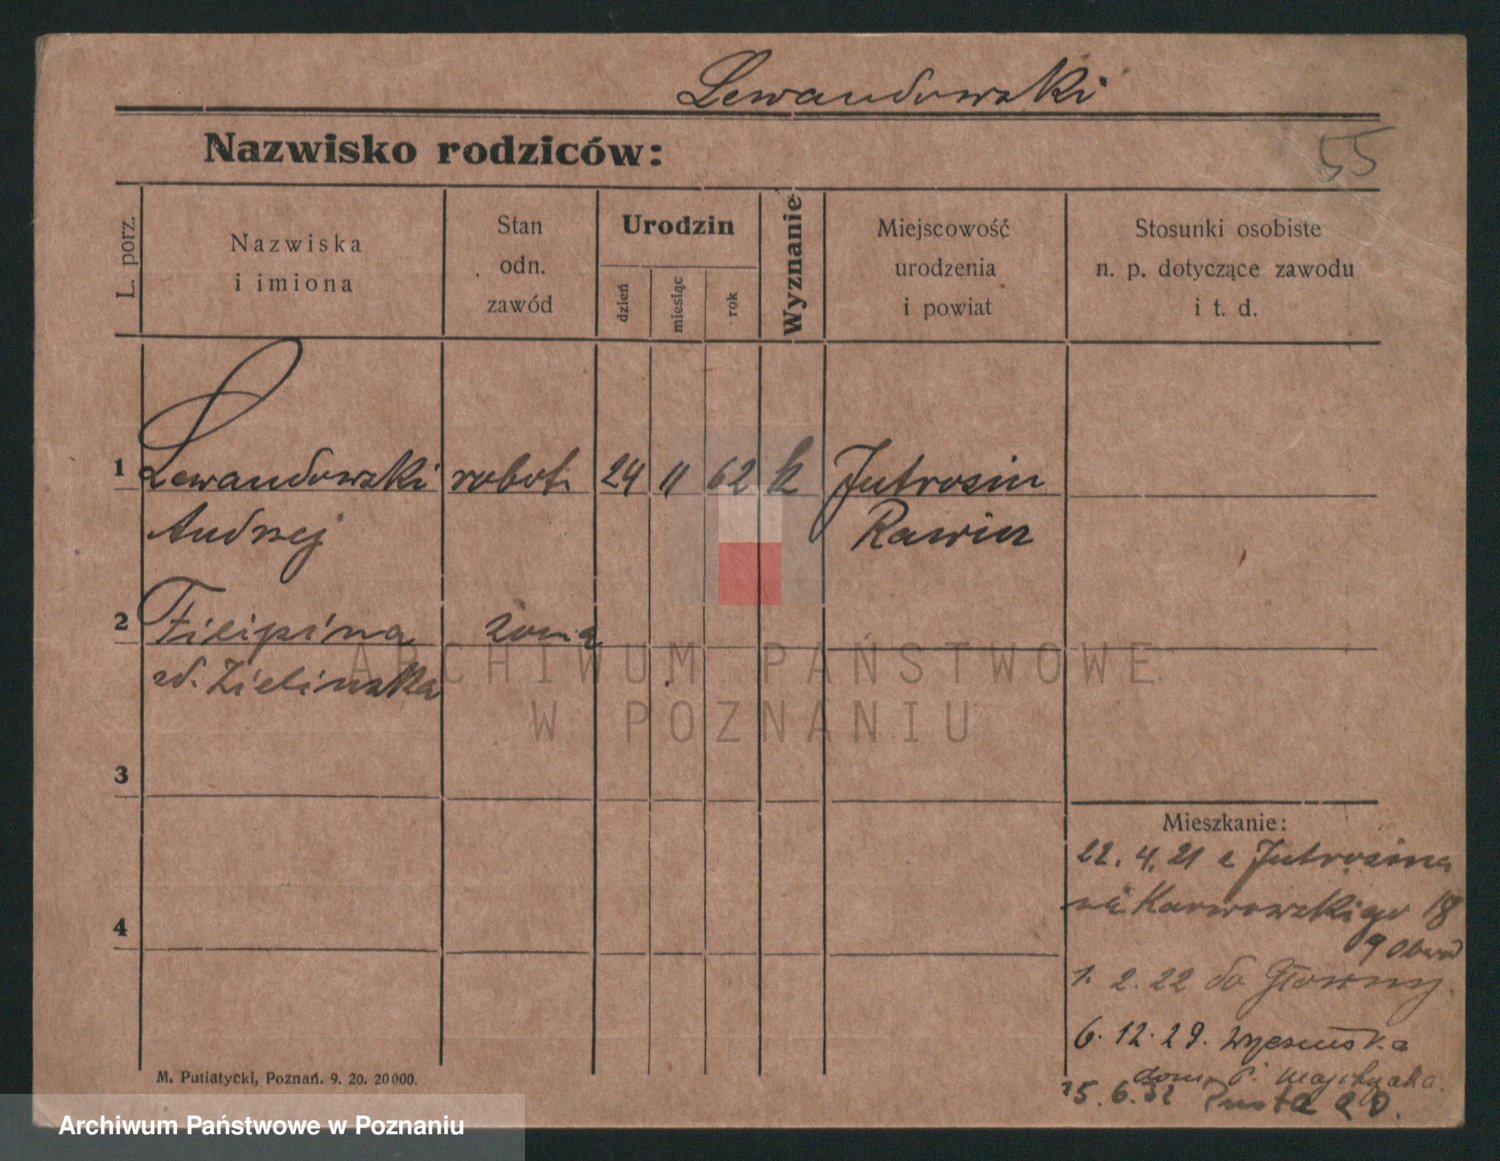 Lewandowski
Nazwisko rodziców:
55
L. porz.
Nazwiska
i imiona
Stan
odn.
zawód
Urodzin
dzień
miesiąc
rok
Wyznanie
Miejscowość
urodzenia
i powiat
Stosunki osobiste
n. p. dotyczące zawodu
i t. d.
1 Lewandowski robot. 24 11 62 k Jutrosin
Andrzej Rawicz
2 Filipina żona
zd. Zielinska
3
4
Mieszkanie:
22. 4. 21 z Jutrosina
na Karwowskiego 18
9 obwód
1. 2. 22 do Głowny.
6. 12. 29.
dom. P.
15. 6. 32 Pusta
M. Putiatycki, Poznań. 9. 20. 20000.
ARCHIWUM PAŃSTWOWE
W POZNANIU
Archiwum Państwowe w Poznaniu